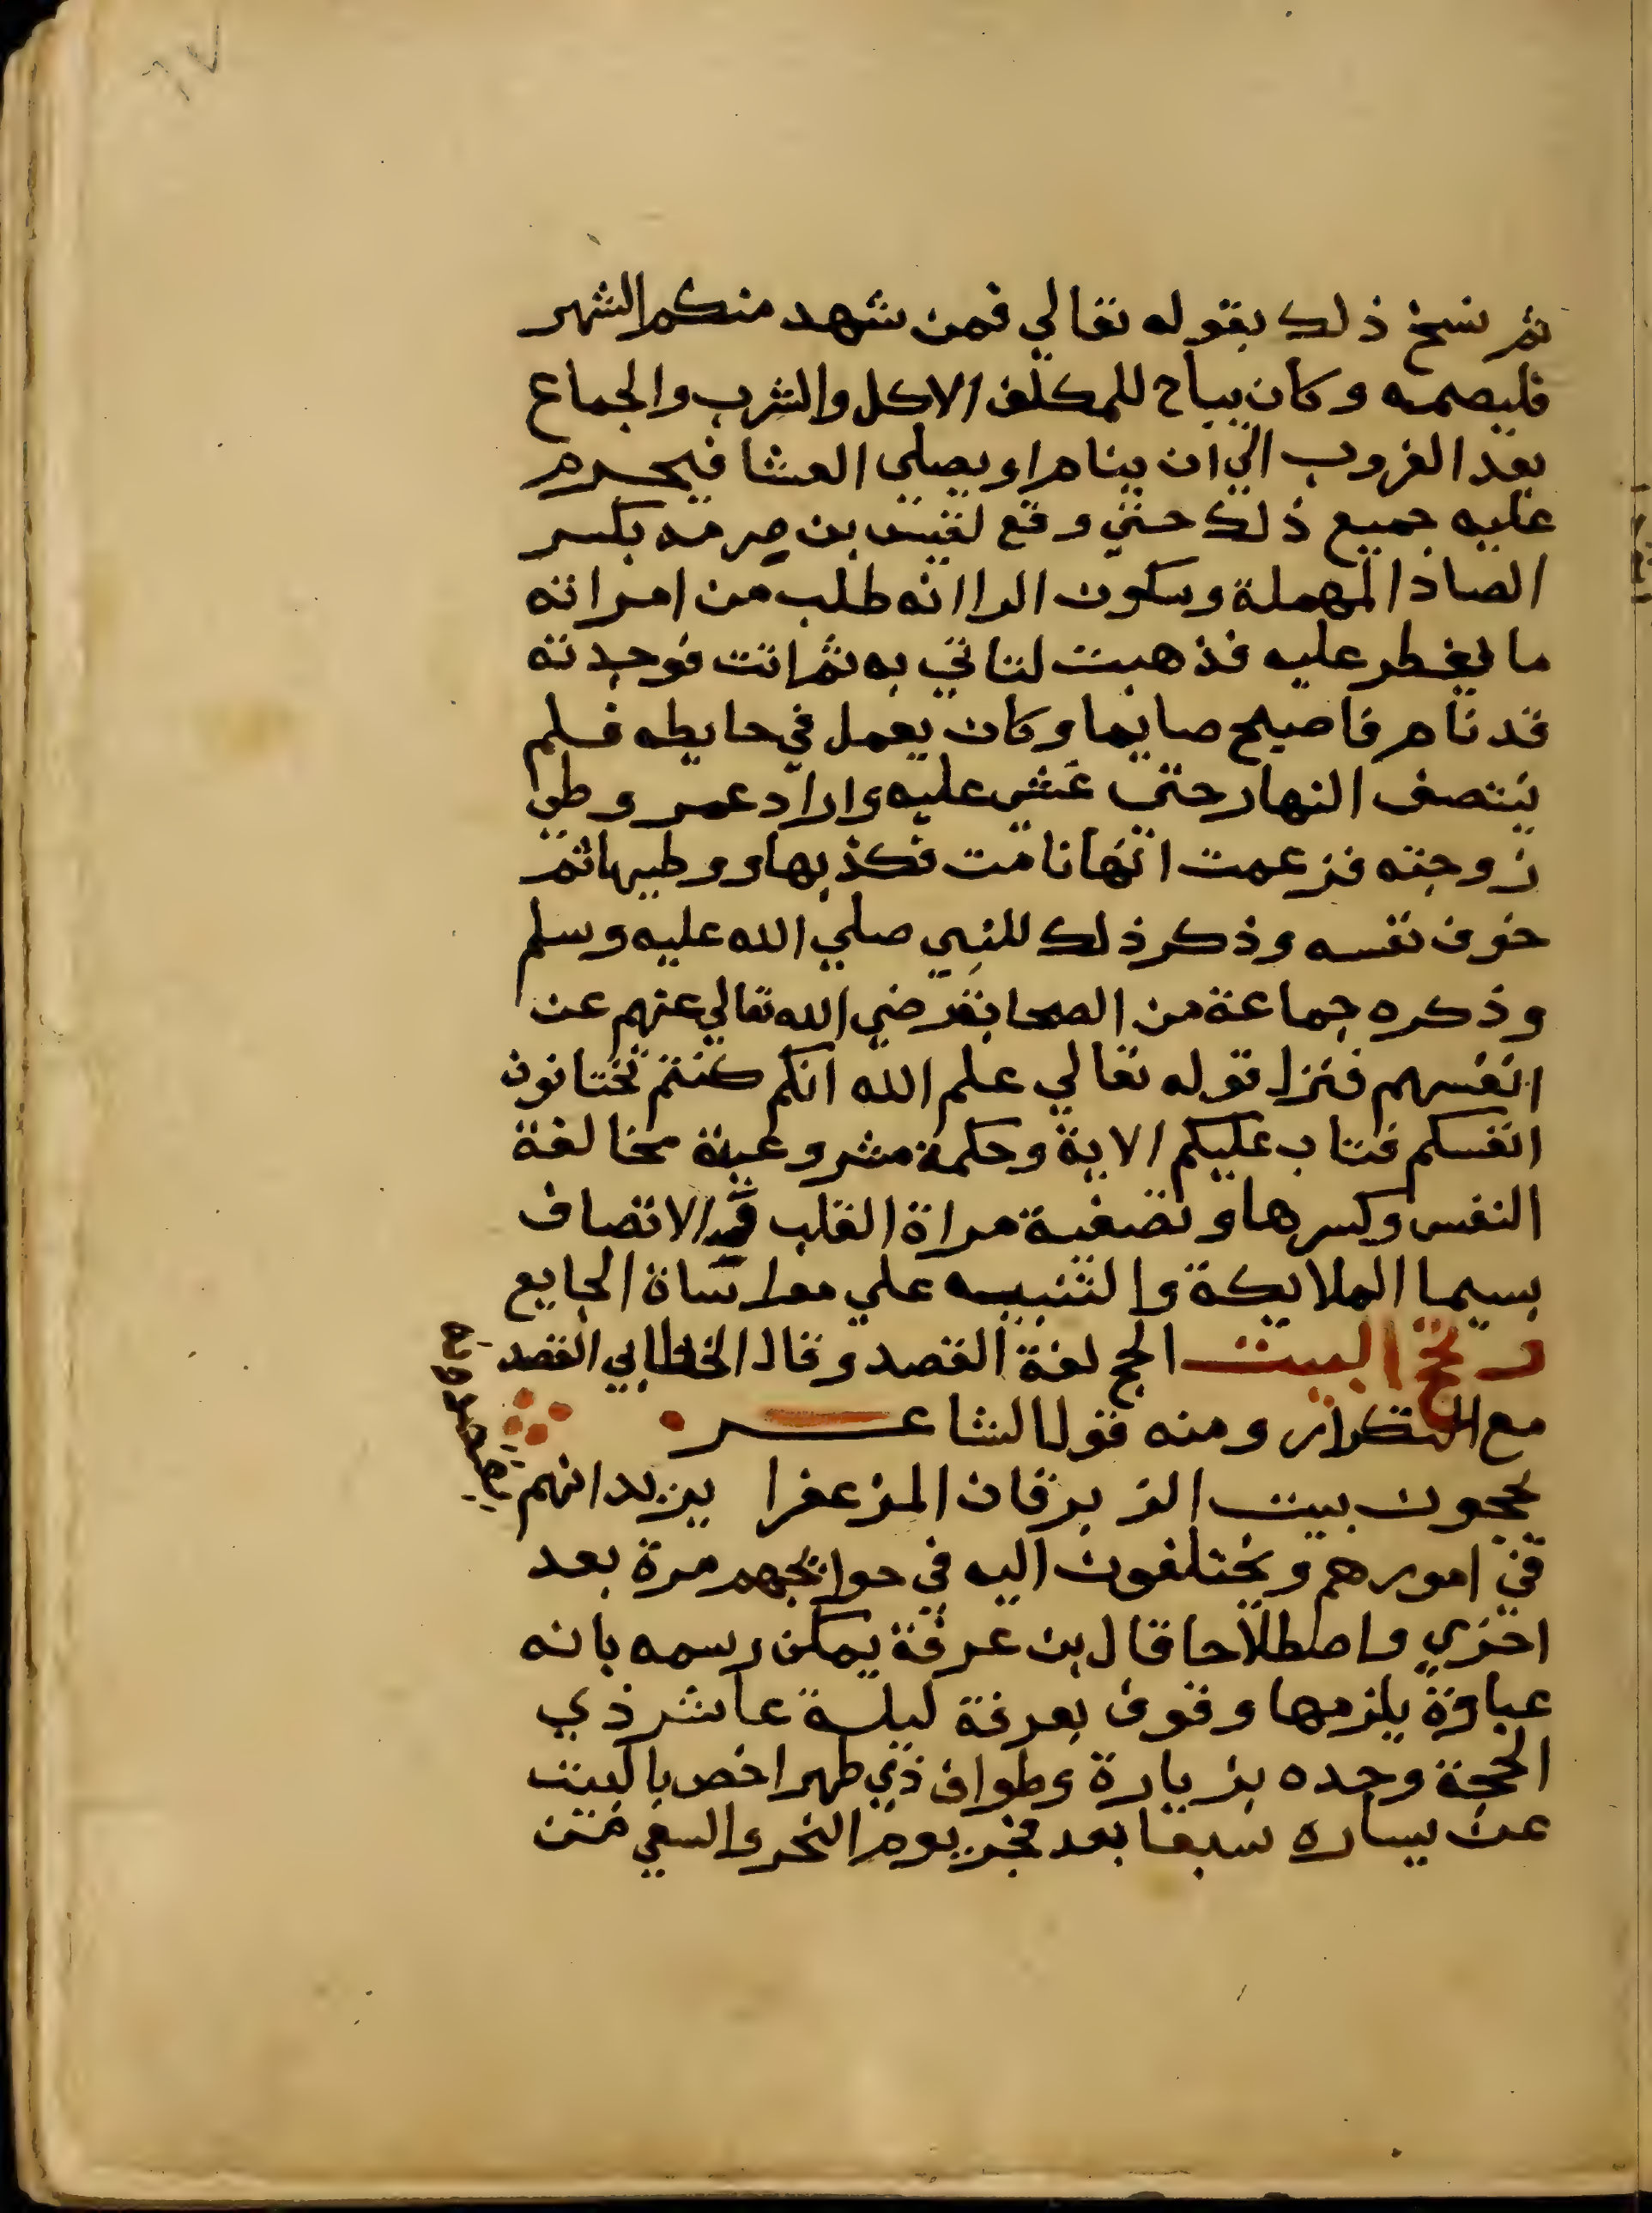 ثم نسخ ذلك بقوله تعالي فمن شهد منكم الشهر
فليصمه وكان يباح للمكلف الاكل والشرب والجماع
بعد الغروب الي ان ينام او يصلي العشا فيحرم
عليه جميع ذلك حتي وقع لقيس بن صرمه بكسر
الصاد المهملة وسكون الرا انه طلب من امراته
ما يفطر عليه فذهبت لتاتي به ثم اتت فوجدته
قد نام فاصبح صايما وكان يعمل في حايطه فلم
ينتصف النهار حتي غشي عليه واراد عمر وطي
زوجته فزعمت انها نامت فكذبها ووطيها ثم
خوف نفسه وذكر ذلك للنبي صلي الله عليه وسلم
وذكره جماعة من الصحابة رضي الله تعالي عنهم عن
انفسهم فنزل قوله تعالي علم الله انكم كنتم تختانون
انفسكم فتاب عليكم الاية وحكمة مشروعيته مخالفة
النفس وكسرها وتصفية مراة القلب والاتصاف
بسيما الملايكة والتنبيه علي مواساة الجايع
وتحج البيت الحج لغة القصد وقال الخطابي القصد
مع التكرار ومنه قول الشاعر
يحجون بيت الزبرقان المزعفرا يريد انهم يقصدونه
في امورهم ويختلفون اليه في حوايجهم مرة بعد
اخري واصطلاحا قال بن عرفة يمكن رسمه بانه
عبادة يلزمها وقوف بعرفة ليلة عاشر ذي
الحجة وحده بزيارة وطواف ذي طهر اخص بالبيت
عن يساره سبعا بعد فجر يوم النحر والسعي من